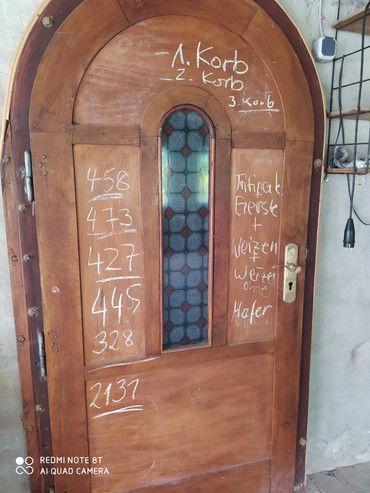 1. Korb
2. Korb
3. Korb
458
473
427
445
328
2131
+
Weizen
+
Weizen
Hafer
REDMI NOTE 8T
AI QUAD CAMERA